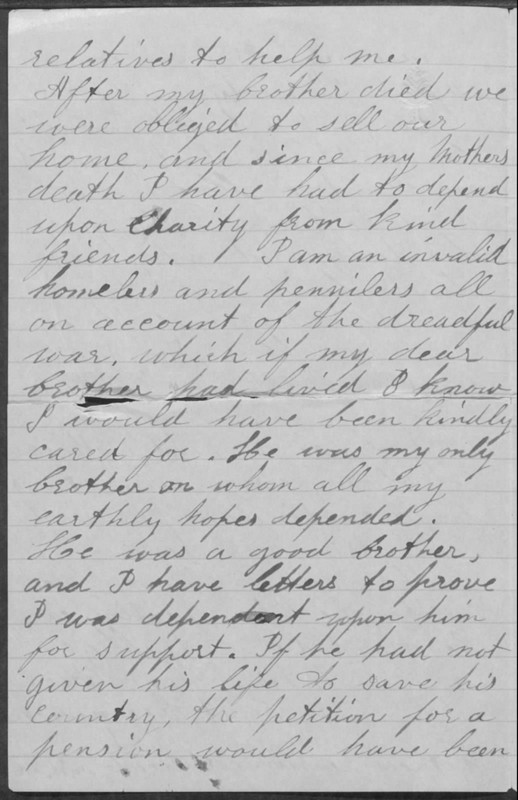 relatives to help me.
After my brother died we
were obliged to sell our
home, and since my Mothers
death I have had to depend
upon Charity from kind
friends. I am an invalid
homeless and penniless all
on account of the dreadful
war, which if my dear
brother had liv'd I know
I would have been kindly
cared for. He was my only
brother on whom all my
earthly hopes depended.
He was a good brother,
and I have letters to prove
I was dependent upon him
for support. If he had not
given his life to save his
country, the petition for a
pension would have been